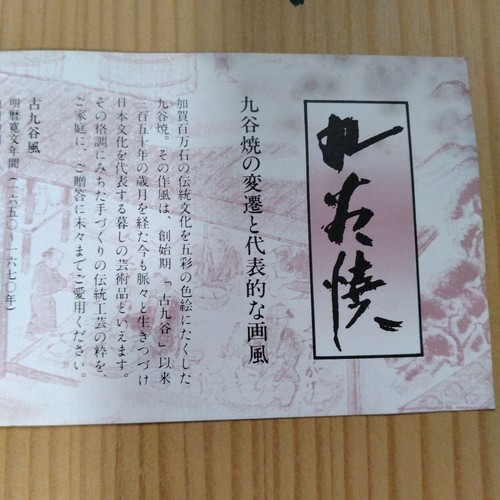 九谷焼
九谷焼の変遷と代表的な画風
加賀百万石の伝統文化を五彩の色絵にたくした
九谷焼。その作風は、創始期「古九谷」以来
三百五十年の歳月を経た今も脈々と生きつづけ
日本文化を代表する暮しの芸術品といえます。
その格調にみちた手づくりの伝統工芸の粋を、
ご家庭に、ご贈答に末々までご愛用ください。
古九谷風
明暦寛文年間(一六五〇〜一六七〇年)